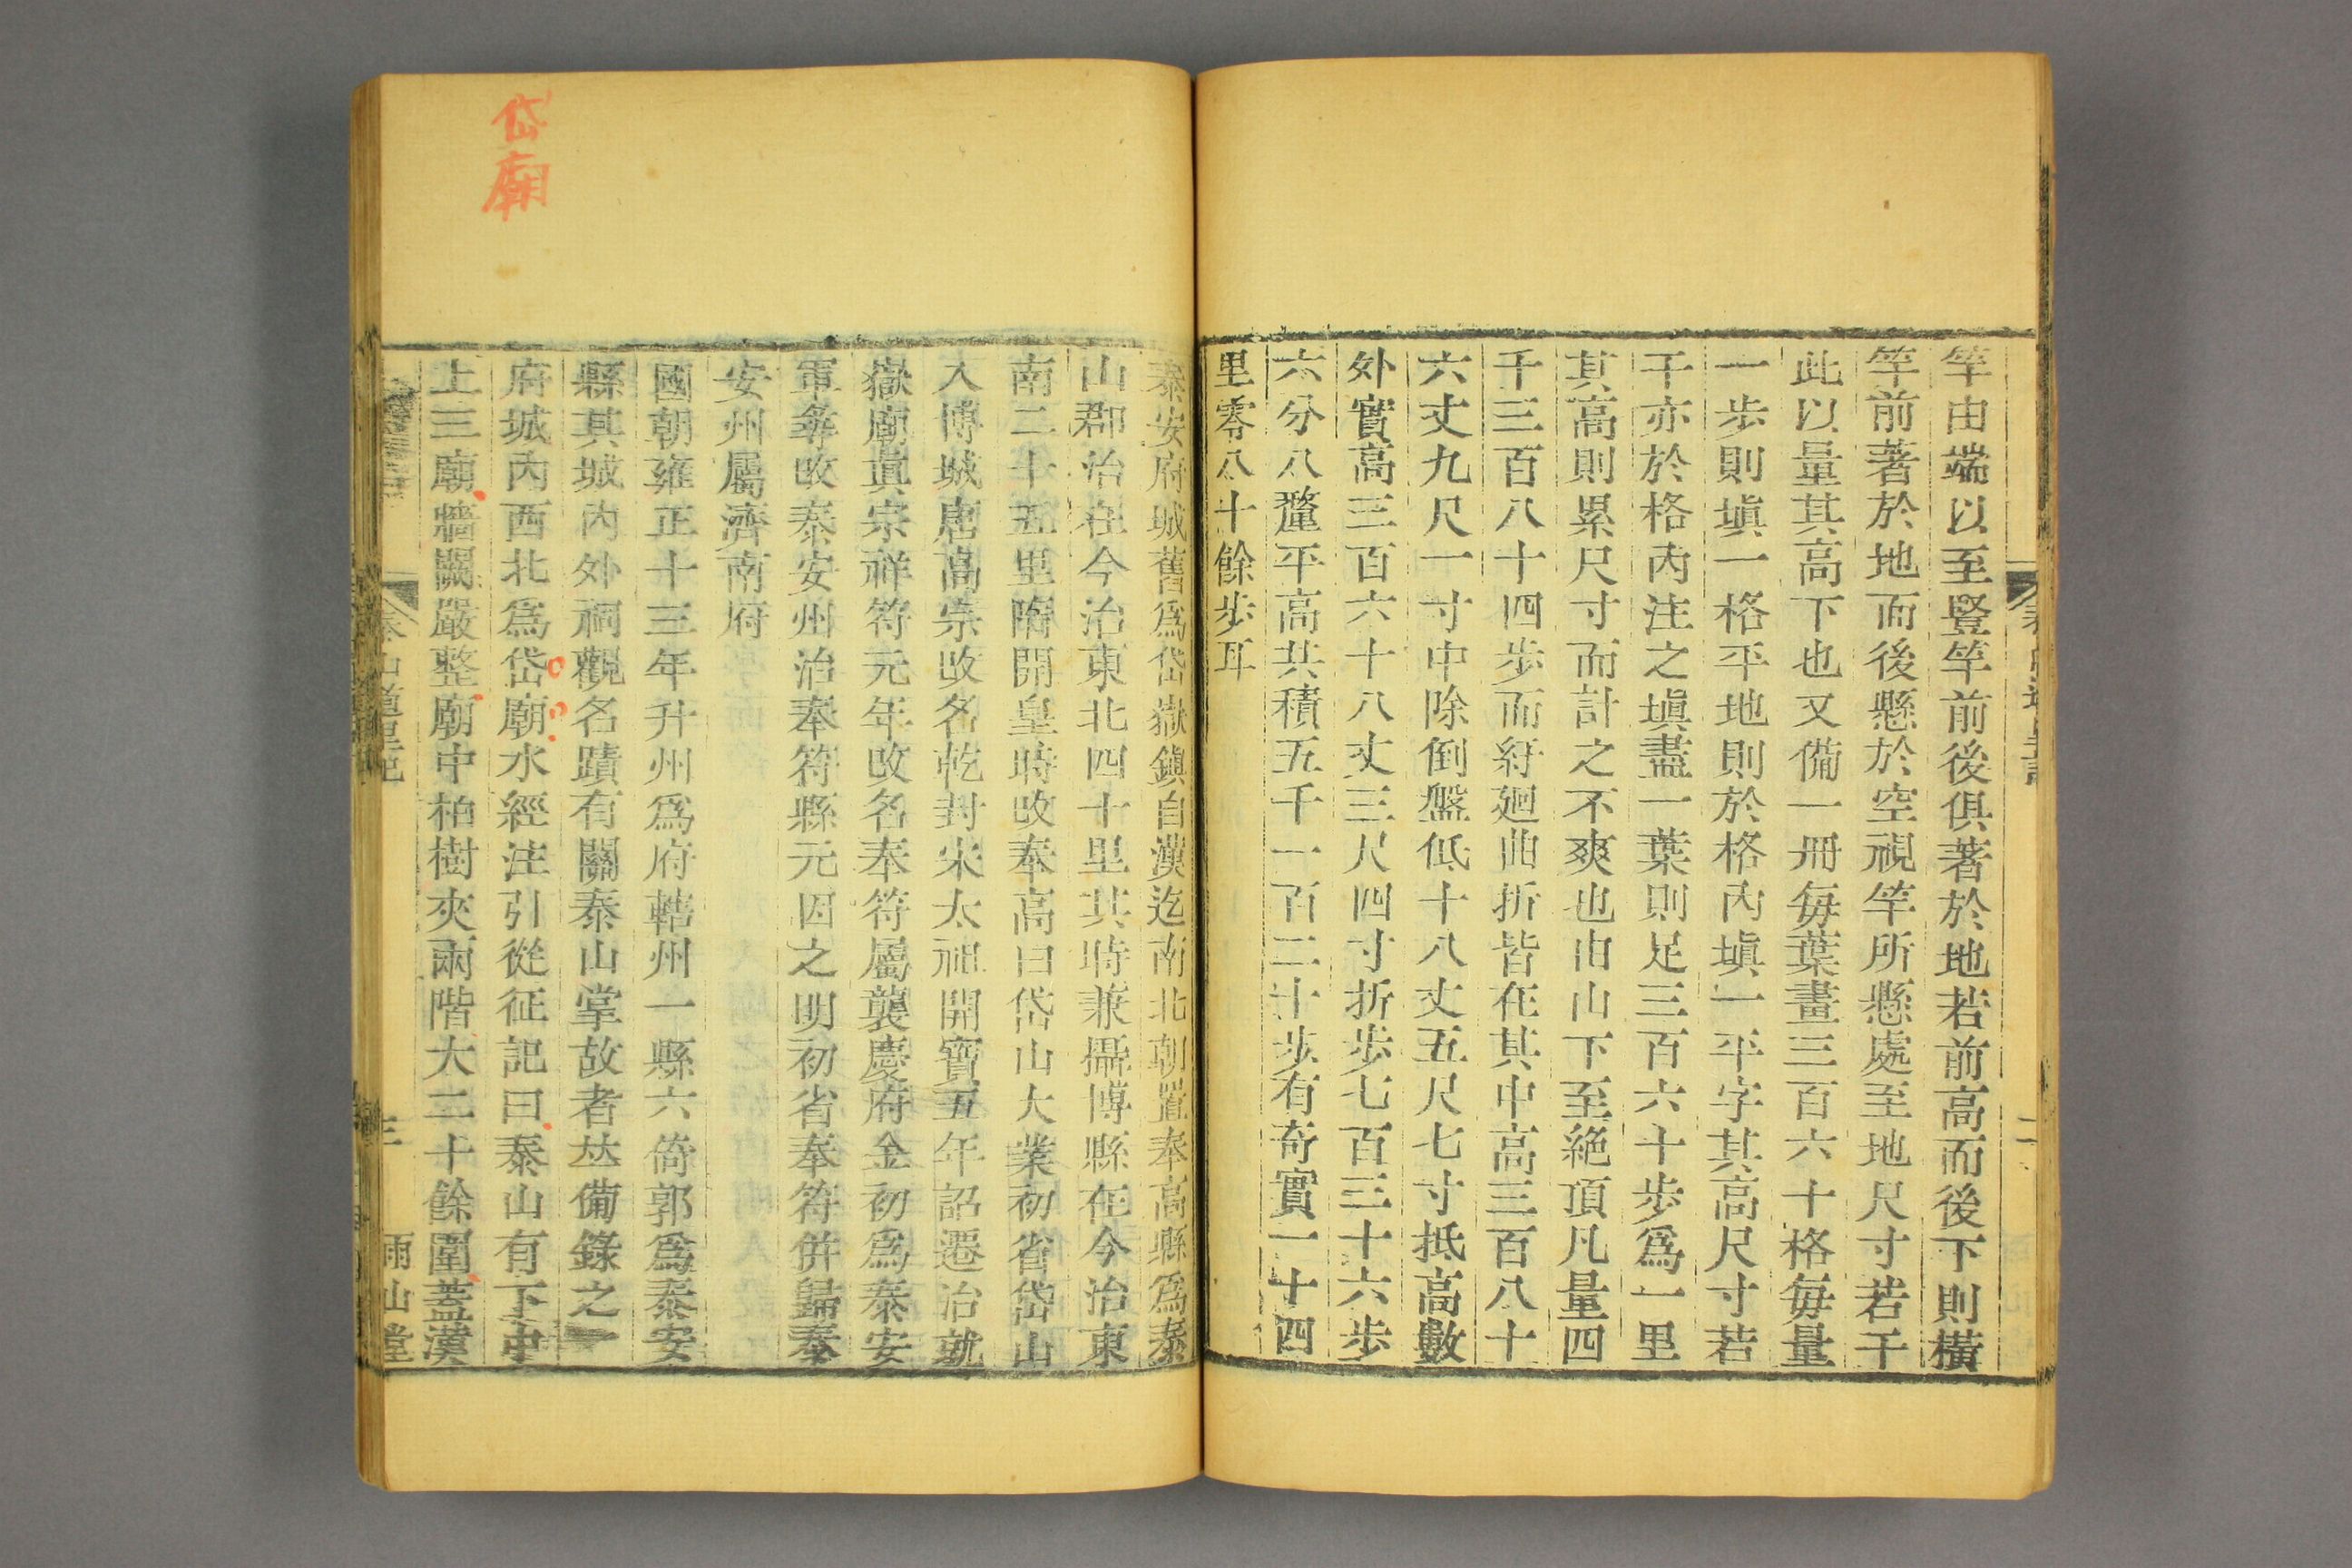 竿由端以至豎竿前後俱著於地若前高而後下則橫
竿前著於地而後懸於空視竿所懸處至地尺寸若干
此以量其高下也又備一冊每葉畫三百六十格每量
一步則填一格平地則於格內填一平字其高尺寸若
干亦於格內注之填盡一葉則足三百六十步爲一里
其高則累尺寸而計之不爽也由山下至絕頂凡量四
千三百八十四步而紆廻曲折皆在其中高三百八十
六丈九尺一寸中除倒盤低十八丈五尺七寸抵高數
外實高三百六十八丈三尺四寸折步七百三十六步
六分八釐平高共積五千一百二十步有奇實一十四
里零八十餘步耳
二
泰安府城舊爲岱嶽鎭自漢迄南北朝置奉高縣爲泰
山郡治在今治東北四十里其時兼攝博縣在今治東
南二十五里隋開皇時改奉高曰岱山大業初省岱山
入博城唐高宗改名乾封宋太祖開寶五年詔遷治就
嶽廟眞宗祥符元年改名奉符屬襲慶府金初爲泰安
軍尋改泰安州治奉符縣元因之明初省奉符併歸泰
安州屬濟南府
國朝雍正十三年升州爲府轄州一縣六倚郭爲泰安
縣其城內外祠觀名蹟有關泰山掌故者並備錄之
府城內西北爲岱廟水經注引從征記曰泰山有下中
上三廟牆闕嚴整廟中柏樹夾兩階大二十餘圍蓋漢
泰山道里記
三
雨山堂
岱廟